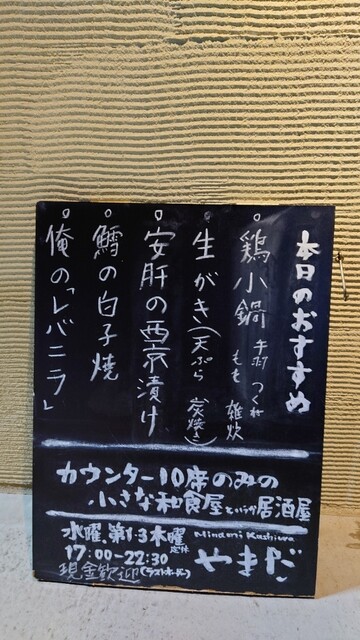 本日のおすすめ
○鶏小鍋 手羽 つくね もも 雑炊
○生がき(天ぷら 炭焼き)
○安肝の西京漬け
○鱈の白子焼
○俺の「レバニラ」
カウンター10席のみの
小さな和食屋という名の居酒屋
水曜、第1・3木曜 定休
17:00-22:30
(ラストオーダー)
現金歓迎
Minami Kashiwa
やまだ